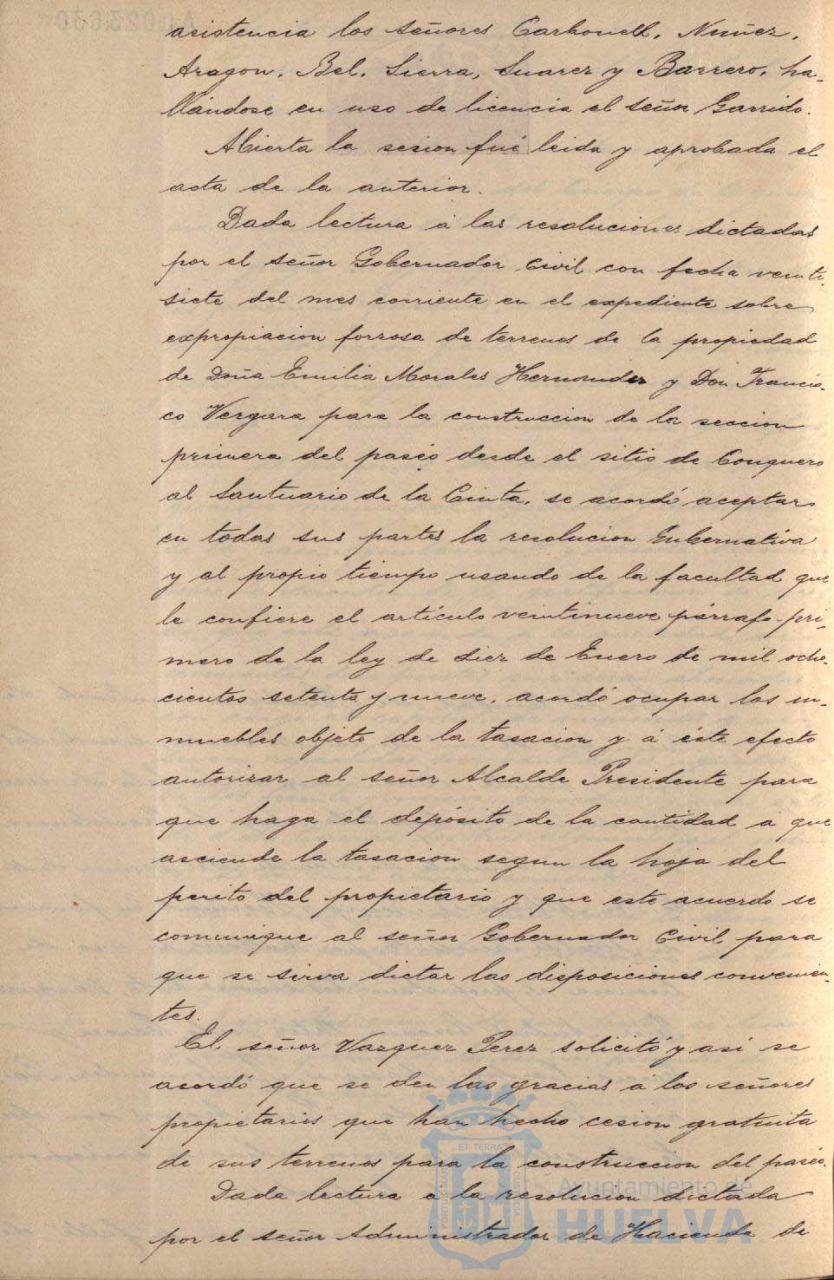 asistencia los señores Carbonell, Nuñez,
Aragon, Bel, Sierra, Suarez y Barrero, ha-
llándose en uso de licencia el señor Garrido.
Abierta la sesion fué leida y aprobada el
acta de la anterior.
Dada lectura á las resoluciones dictadas
por el señor Gobernador Civil con fecha veinti-
siete del mes corriente en el expediente sobre
expropiacion forrosa de terrenos de la propiedad
de Doña Emilia Morales Hernandez y Don Francis-
co Vergara para la construccion de la seccion
primera del paseo desde el sitio de Conquero
al Santuario de la Cinta, se acordó aceptar
en todas sus partes la resolucion Gubernativa
y al propio tiempo usando de la facultad que
le confiere el artículo veintinueve párrafo pri-
mero de la ley de diez de Enero de mil ocho-
cientos setenta y nueve, acordó ocupar los in-
muebles objeto de la tasacion y á éste efecto
autorizar al señor Alcalde Presidente para
que haga el depósito de la cantidad a que
asciende la tasacion segun la hoja del
perito del propietario y que este acuerdo se
comunique al señor Gobernador Civil para
que se sirva dictar las disposiciones convenien-
tes.
El señor Vazquez Perez solicitó y así se
acordó que se den las gracias á los señores
propietarios que han hecho cesion gratuita
de sus terrenos para la construccion del paseo.
Dada lectura a la resolucion dictada
por el señor Administrador de Hacienda de
Ayuntamiento de
HUELVA